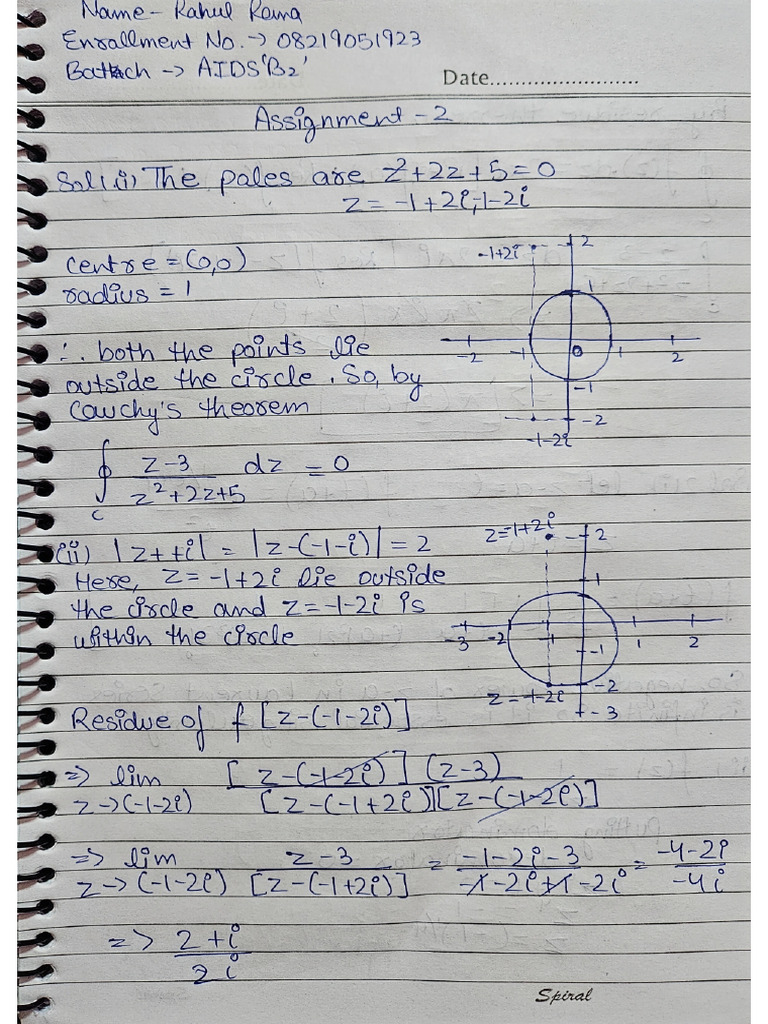 Name - Rahul Rana
Enrollment No. -> 08219051923
Batch -> AIDS 'B2'
Date........................
Assignment - 2
Sol 1 (i) The poles are z² + 2z + 5 = 0
z = -1 + 2i, -1 - 2i
centre = (0,0)
radius = 1
∴ both the points lie
outside the circle. So, by
Cauchy's theorem
∮c (z - 3)/(z² + 2z + 5) dz = 0
-1+2i 2
1
-2 -1 0 1 2
-1
-2
-1-2i
(ii) |z + 1 + i| = |z - (-1 - i)| = 2
Here, z = -1 + 2i lie outside
the circle and z = -1 - 2i is
within the circle
z = -1+2i 2
1
-3 -2 -1 1 2
-1
z = -1-2i -2
-3
Residue of f [z - (-1 - 2i)]
=> lim z->(-1-2i) [z - (-1 - 2i)] (z - 3) / [z - (-1 + 2i)] [z - (-1 - 2i)]
=> lim z->(-1-2i) (z - 3)/[z - (-1 + 2i)] = (-1 - 2i - 3)/(-1 - 2i + 1 - 2i) = (-4 - 2i)/(-4i)
=> (2 + i)/(2i)
Spiral